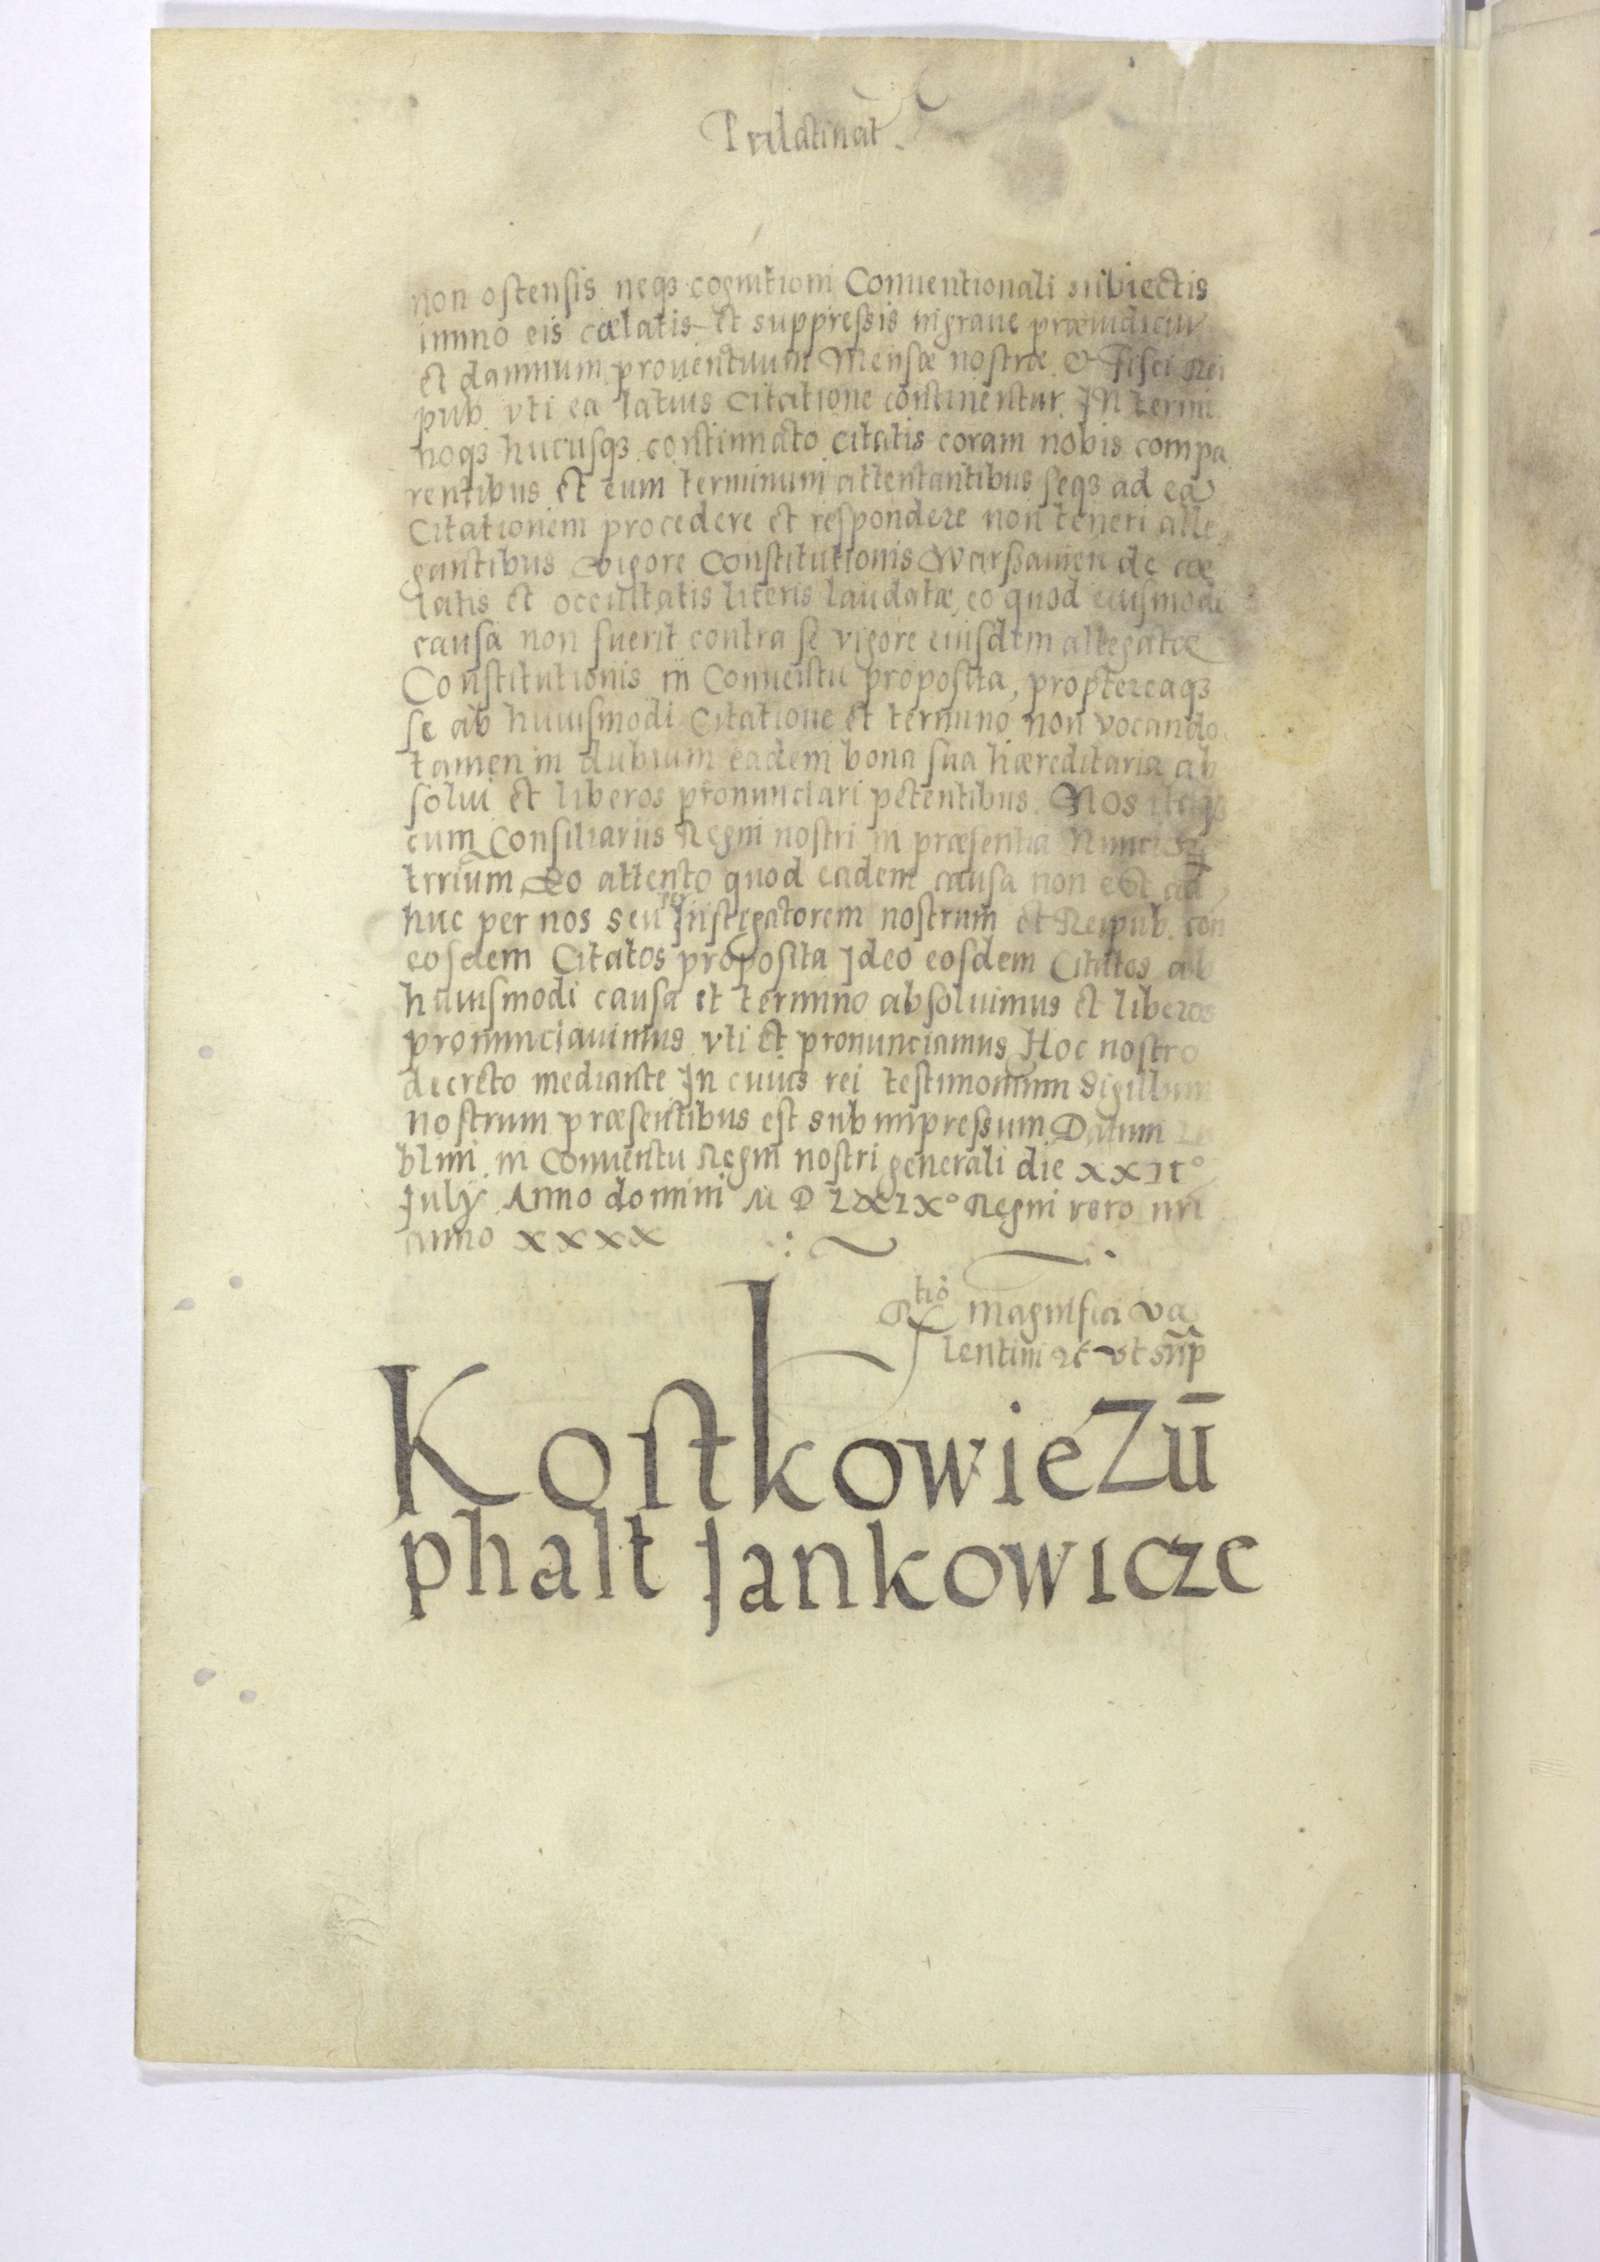 Palatinat
non ostensis neqȝ cognitioni Conuentionali subiectis
immo eis cœlatis et suppressis in graue præiudiciū
et damnum prouentuum Mensæ nostræ & Fisci Rei
pub. vti ea latius Citatione continentur. In termi
noqȝ hucusqȝ continuato citatis coram nobis compa
rentibus et eum terminum attentantibus seqȝ ad eā
Citationem procedere et respondere non teneri alle
gantibus vigore Constitutionis Warssauien de cœ
latis et occultatis literis laudatæ, eo quod eiusmodi
causa non fuerit contra se vigore eiusdem allegatæ
Constitutionis in Conuentu proposita, proptereaqȝ
se ab huiusmodi Citatione et termino non vocando
tamen in dubium eadem bona sua hæreditaria ab
solui et liberos pronunciari petentibus. Nos itaqȝ
cum Consiliariis Regni nostri in præsentia Nuncior
trrium, Eo attento quod eadem causa non est ad
huc per nos seu per Instigatorem nostrum et Reipub. con
eosdem Citatos proposita Ideo eosdem Citatos ab
huiusmodi causa et termino absoluimus et liberos
pronunciauimus vti et pronunciamus Hoc nostro
decreto mediante In cuius rei testimonium Sigillum
nostrum præsentibus est subimpressum Datum Lu
blini in Conuentu Regni nostri generali die XXII°
July Anno domini M D LXIX° Regni vero nri
anno XXXX
Rtio magnifici Va
lentini ꝛc vt sup
Kostkowie Zū
phalt Jankowicze